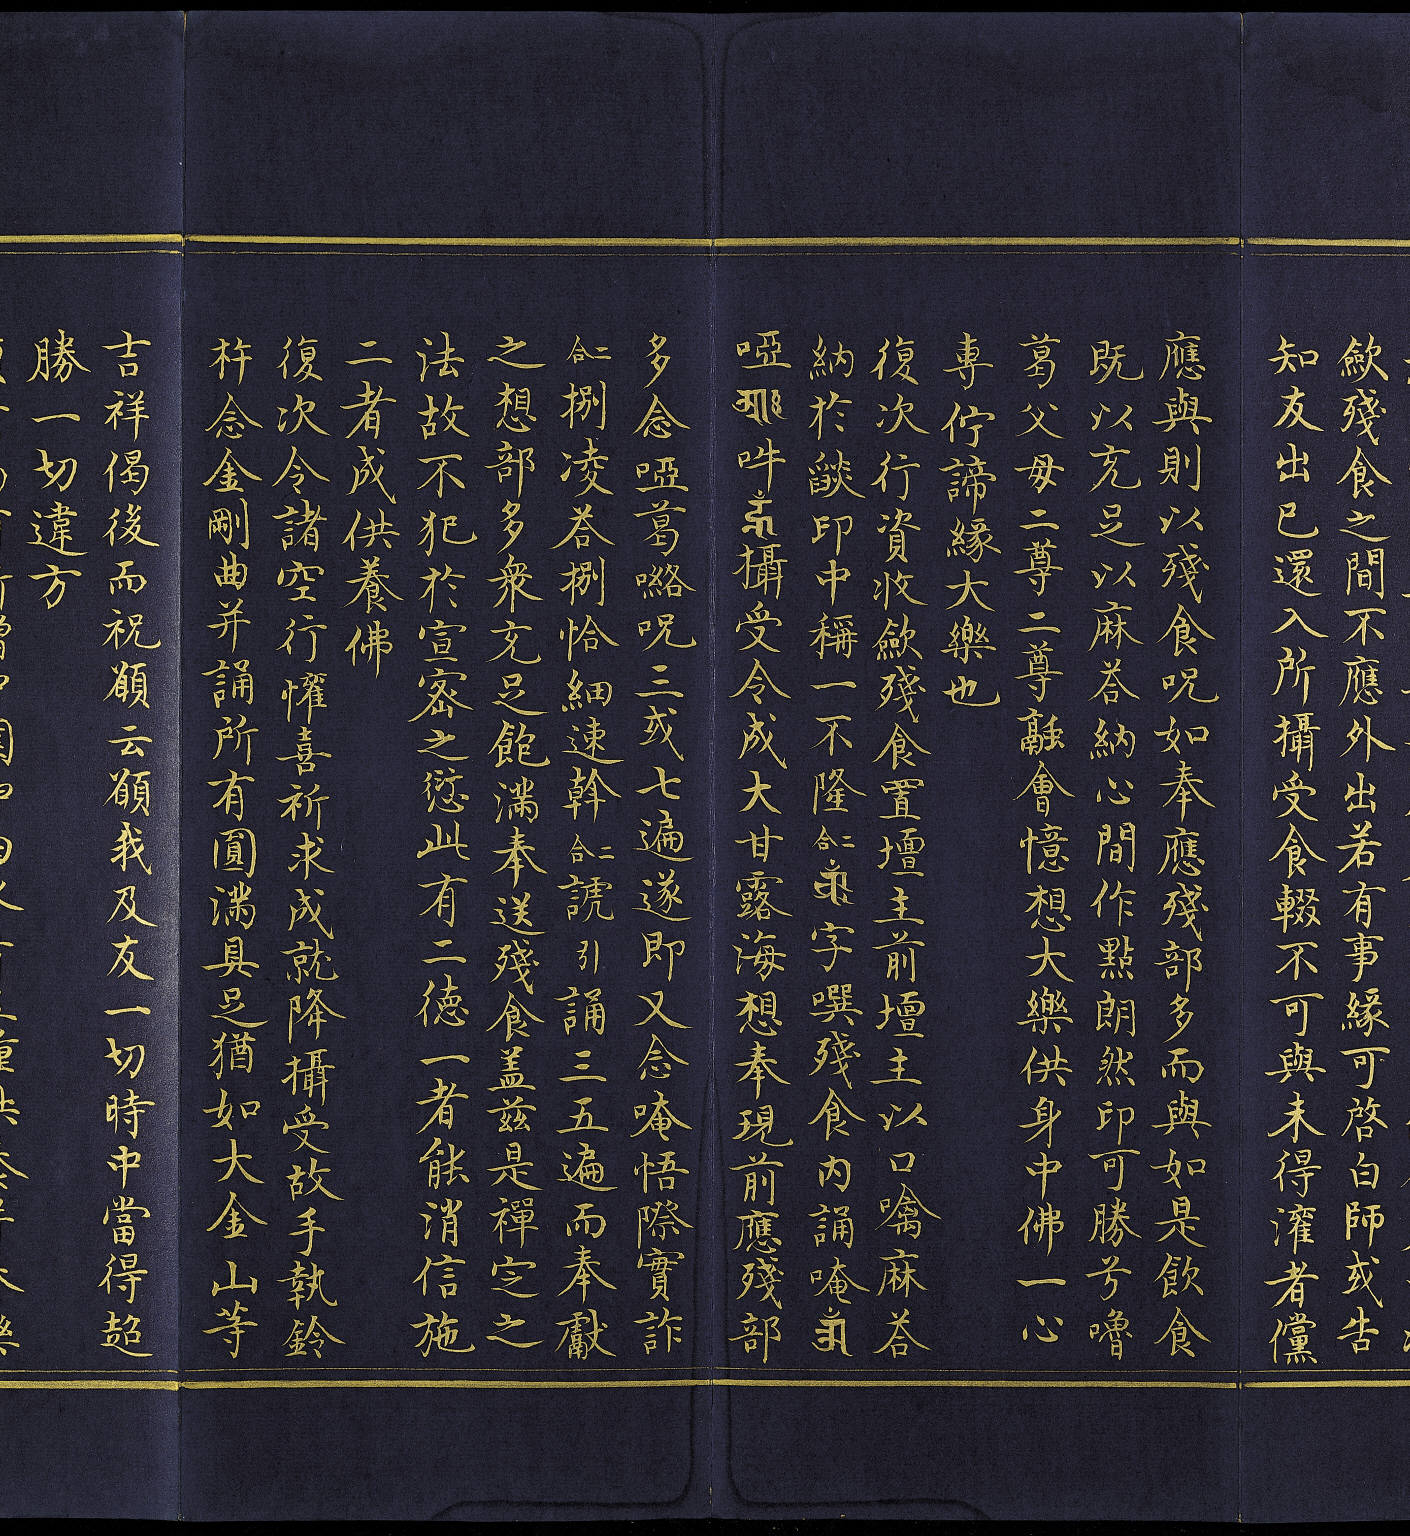 歛殘食之間不應外出若有事緣可啓白師或告
知友出已還入所攝受食輟不可與未得灌者儻
應與則以殘食呪如奉應殘部多而與如是飲食
既以充足以麻荅納心間作點朗然印可勝兮嚕
葛父母二尊二尊融會憶想大樂供身中佛一心
專佇諦緣大樂也
復次行資收歛殘食置壇主前壇主以口噙麻荅
納於燄印中稱一不隆二合字噀殘食內誦唵
啞吽攝受令成大甘露海想奉現前應殘部
多念啞葛嚕呪三或七遍遂即又念唵悟際實詐
二合捌凌荅捌恰細速斡二合謊引誦三五遍而奉獻
之想部多衆充足飽滿奉送殘食盖兹是禪定之
法故不犯於宣密之愆此有二德一者能消信施
二者成供養佛
復次令諸空行懽喜祈求成就降攝受故手執鈴
杵念金剛曲并誦所有圓滿具足猶如大金山等
吉祥偈後而祝願云願我及友一切時中當得超
勝一切違方